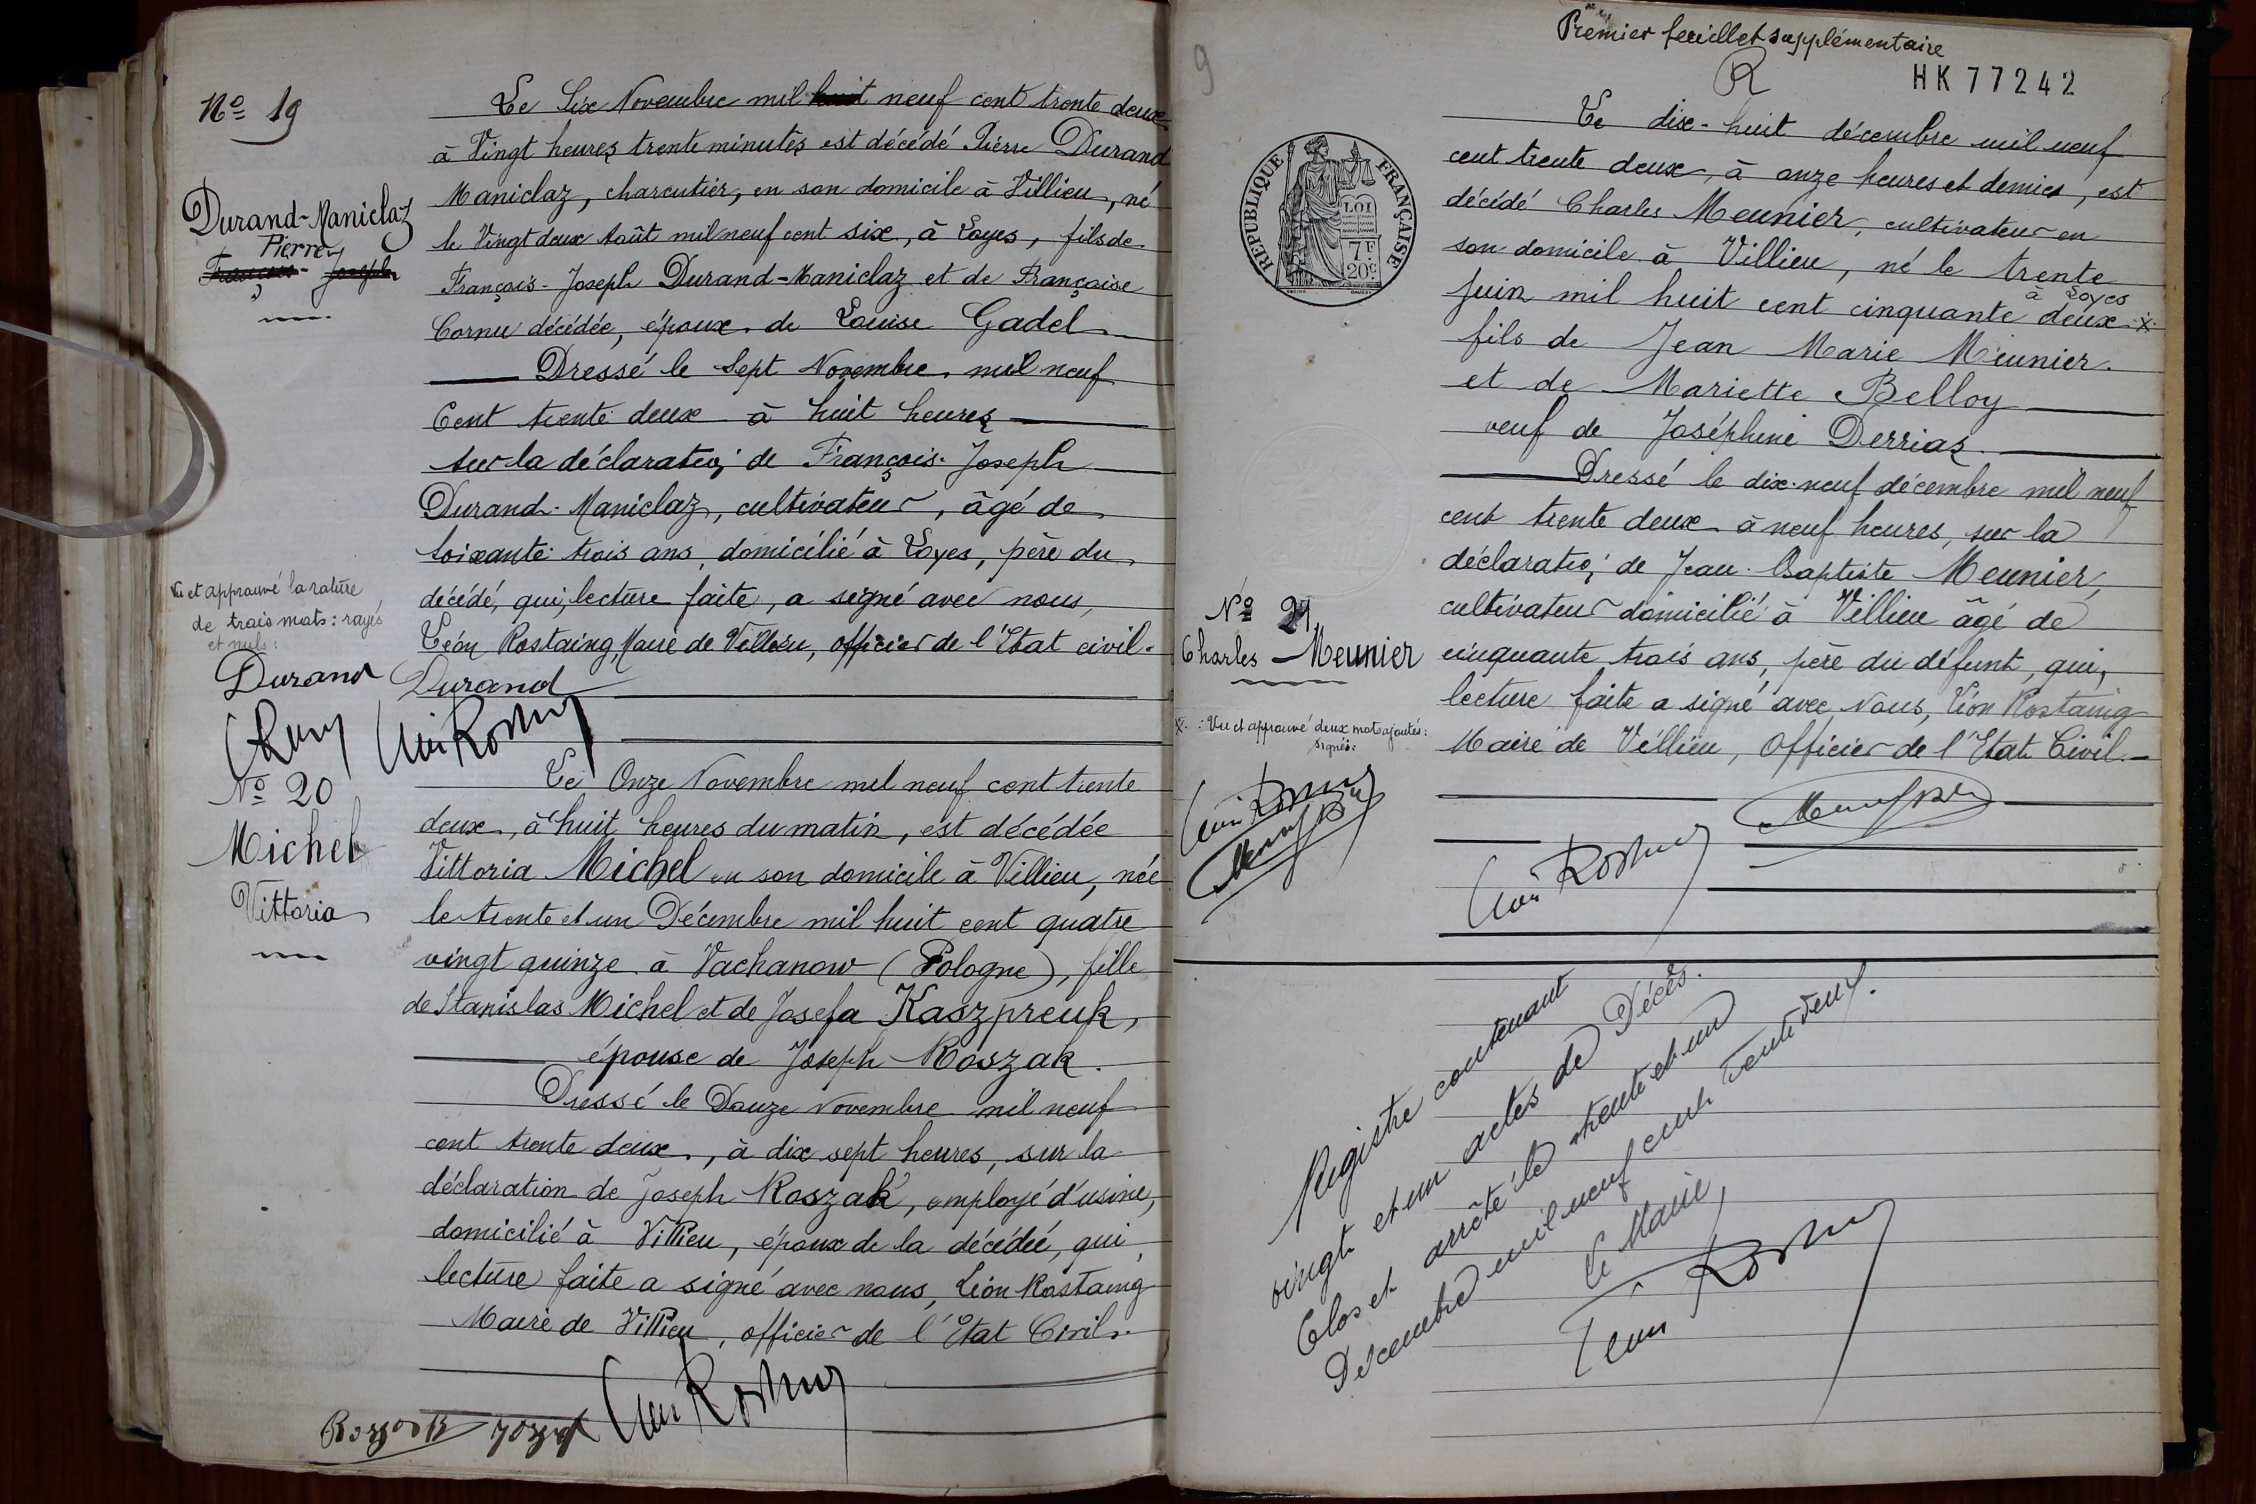 Nº 19
Le Six Novembre mil huit neuf cent trente deux
à Vingt heures trente minutes est décédé Pierre Durand
Maniclaz, charcutier, en son domicile à Villieu, né
le Vingt deux Août mil neuf cent six, à Loyes, fils de
François-Joseph Durand-Maniclaz et de Françoise
Cornu décédée, époux de Louise Gadel
Dressé le Sept Novembre mil neuf
Cent trente deux à huit heures
sur la déclaration de François-Joseph
Durand-Maniclaz, cultivateur, âgé de
soixante trois ans, domicilié à Loyes, père du
décédé, qui, lecture faite, a signé avec nous,
Léon Rostaing, Maire de Villieu, officier de l'Etat civil.
Durand-Maniclaz
Pierre
François-Joseph
Vu et approuvé la rature
de trois mots: rayés
et nuls:
Durand
Durand
Nº 20
Michel
Vittoria
Le Onze Novembre mil neuf cent trente
deux, à huit heures du matin, est décédée
Vittoria Michel en son domicile à Villieu, née
le trente et un Décembre mil huit cent quatre
vingt quinze à Vachanow (Pologne), fille
de Stanislas Michel et de Josefa Kaszpreuk,
épouse de Joseph Roszak.
Dressé le Douze Novembre mil neuf
cent trente deux, à dix sept heures, sur la
déclaration de Joseph Roszak, employé d'usine,
domicilié à Villieu, époux de la décédée, qui
lecture faite a signé avec nous, Léon Rostaing
Maire de Villieu, officier de l'Etat Civil.
9
Premier feuillet supplémentaire
R
HK 77242
REPUBLIQUE FRANÇAISE
LOI
7F
20c
Le dix-huit décembre mil neuf
cent trente deux, à onze heures et demies, est
décédé Charles Meunier, cultivateur en
son domicile à Villieu, né le trente
à Loyes
Juin mil huit cent cinquante deux x
fils de Jean Marie Meunier
et de Mariette Belloy
veuf de Joséphine Derrias.
Dressé le dix-neuf décembre mil neuf
cent trente deux à neuf heures, sur la
déclaration de Jean-Baptiste Meunier,
cultivateur domicilié à Villieu âgé de
cinquante trois ans, père du défunt, qui,
lecture faite a signé avec Nous, Léon Rostaing
Maire de Villieu, Officier de l'Etat Civil.
Nº 21
Charles Meunier
x : Vu et approuvé deux mots ajoutés:
signés:
Registre contenant
vingt et un actes de Décès.
Clos et arrêté le trente et un
Décembre mil neuf cent trente deux.
Le Maire,